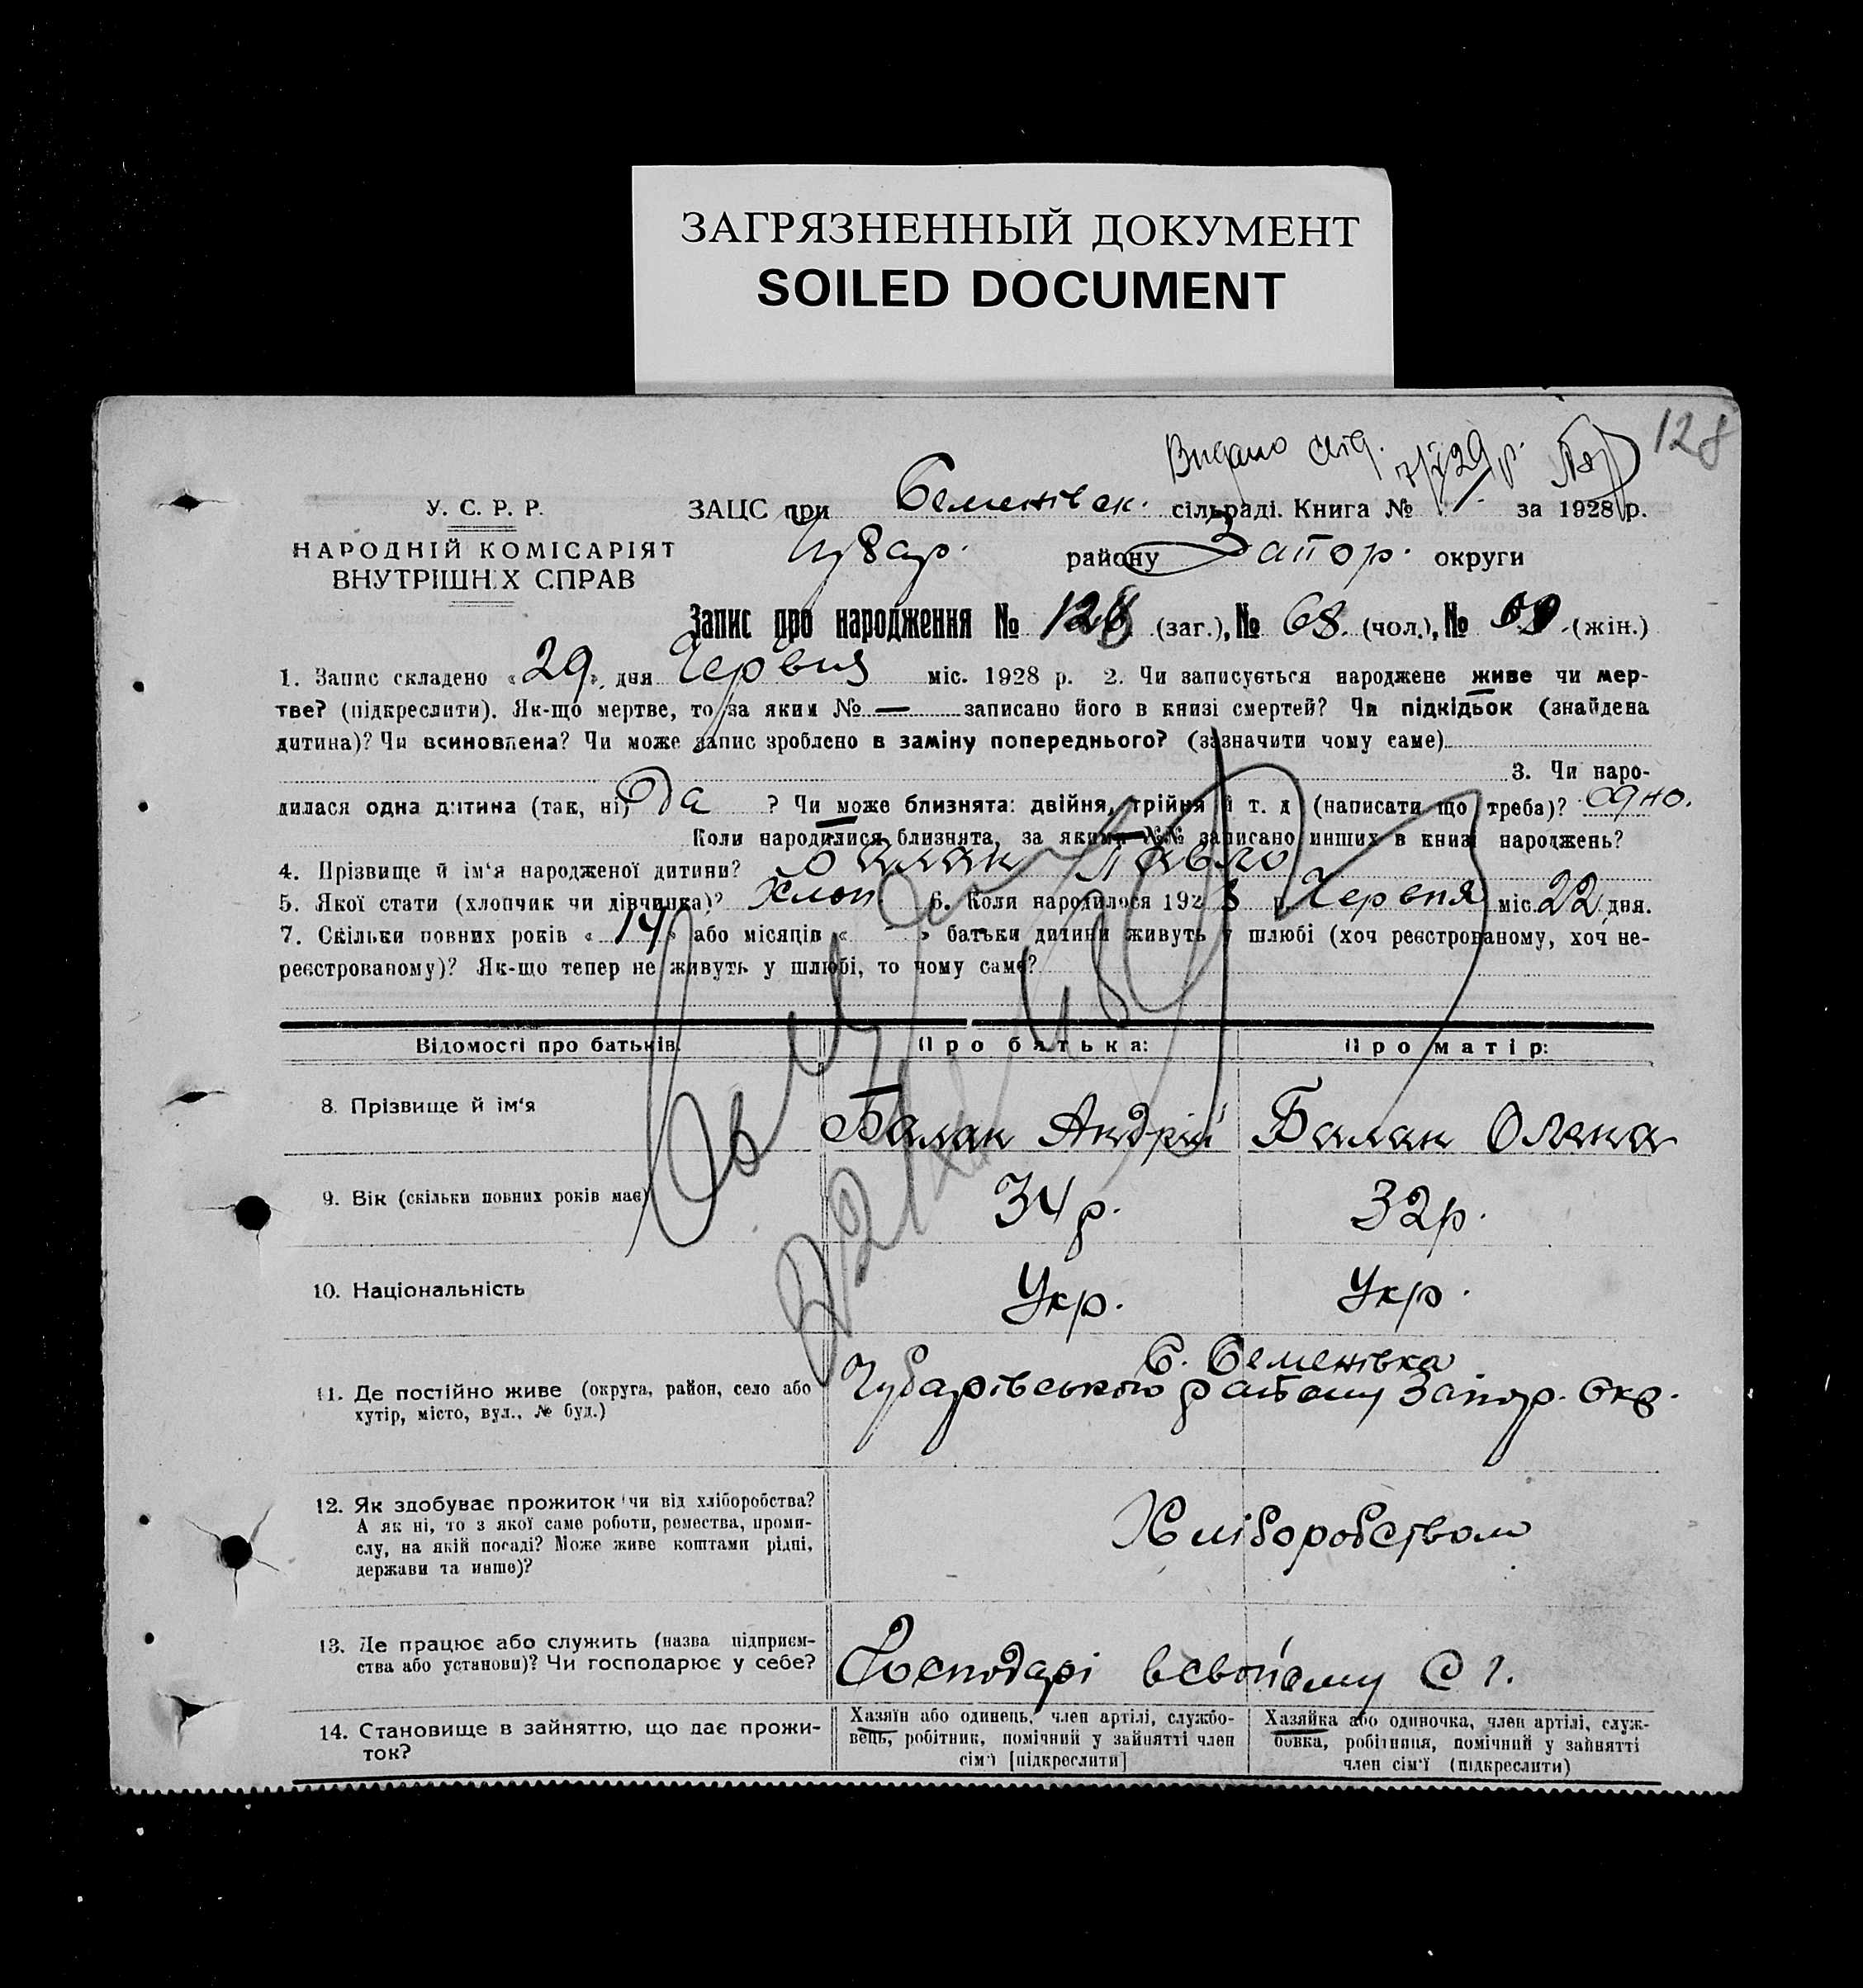 ЗАГРЯЗНЕННЫЙ ДОКУМЕНТ
SOILED DOCUMENT
128
Видано
У. С. Р. Р.
НАРОДНІЙ КОМІСАРІЯТ
ВНУТРІШНІХ СПРАВ
ЗАЦС при Семенівск. сільраді. Книга № за 1928 р.
Чубар. району Запор. округи
Запис про народження № 128 (заг.), № 68. (чол.), № (жін.)
1. Запис складено «29» дня Червня міс. 1928 р. 2. Чи записується народжене живе чи мер-
тве? (підкреслити). Як-що мертве, то за яким № — записано його в книзі смертей? Чи підкідьок (знайдена
дитина)? Чи всиновлена? Чи може запис зроблено в заміну попереднього? (зазначити чому саме)
3. Чи наро-
дилася одна дитина (так, ні) Да ? Чи може близнята: двійня, трійня й т. д (написати що треба)? одно.
Коли народилися близнята, за якими №№ записано инших в книзі народжень?
4. Прізвище й ім'я народженої дитини? Балан Павло
5. Якої статі (хлопчик чи дівчинка)? Хлоп 6. Коли народилося 1928 р. Червня міс. 22 дня.
7. Скільки повних років «14» або місяців « » батьки дитини живуть у шлюбі (хоч реєстрованому, хоч не-
реєстрованому)? Як-що тепер не живуть у шлюбі, то чому саме?
Відомості про батьків. Про батька: Про матір:
8. Прізвище й ім'я Балан Андрій Балан Олена
9. Вік (скільки повних років має) 34 р. 32 р.
10. Національність Укр. Укр.
С. Семенівка
11. Де постійно живе (округа, район, село або Чубарівського району Запор. Окр.
хутір, місто, вул., № буд.)
12. Як здобуває прожиток чи від хліборобства?
А як ні, то з якої саме роботи, ремества, проми-
слу, на якій посаді? Може живе коштами рідні,
держави та инше)?
Хліборобством
13. Де працює або служить (назва підприєм-
ства або установи)? Чи господарює у себе?
Господарі в своїому С г.
14. Становище в зайняттю, що дає прожи-
ток?
Хазяїн або одинець, член артілі, службо-
вець, робітник, помічний у зайнятті член
сім'ї [підкреслити]
Хазяйка або одиночка, член артілі, служ-
бовка, робітниця, помічний у зайнятті
член сім'ї (підкреслити)